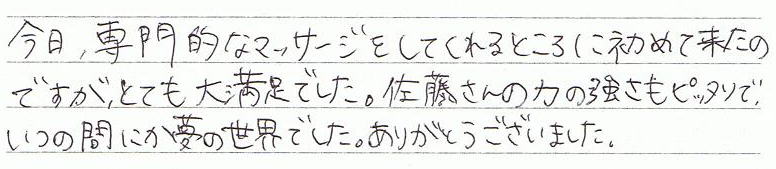 今日，専門的なマッサージをしてくれるところに初めて来たの
ですが，とても大満足でした。佐藤さんの力の強さもピッタリで，
いつの間にか夢の世界でした。ありがとうございました。